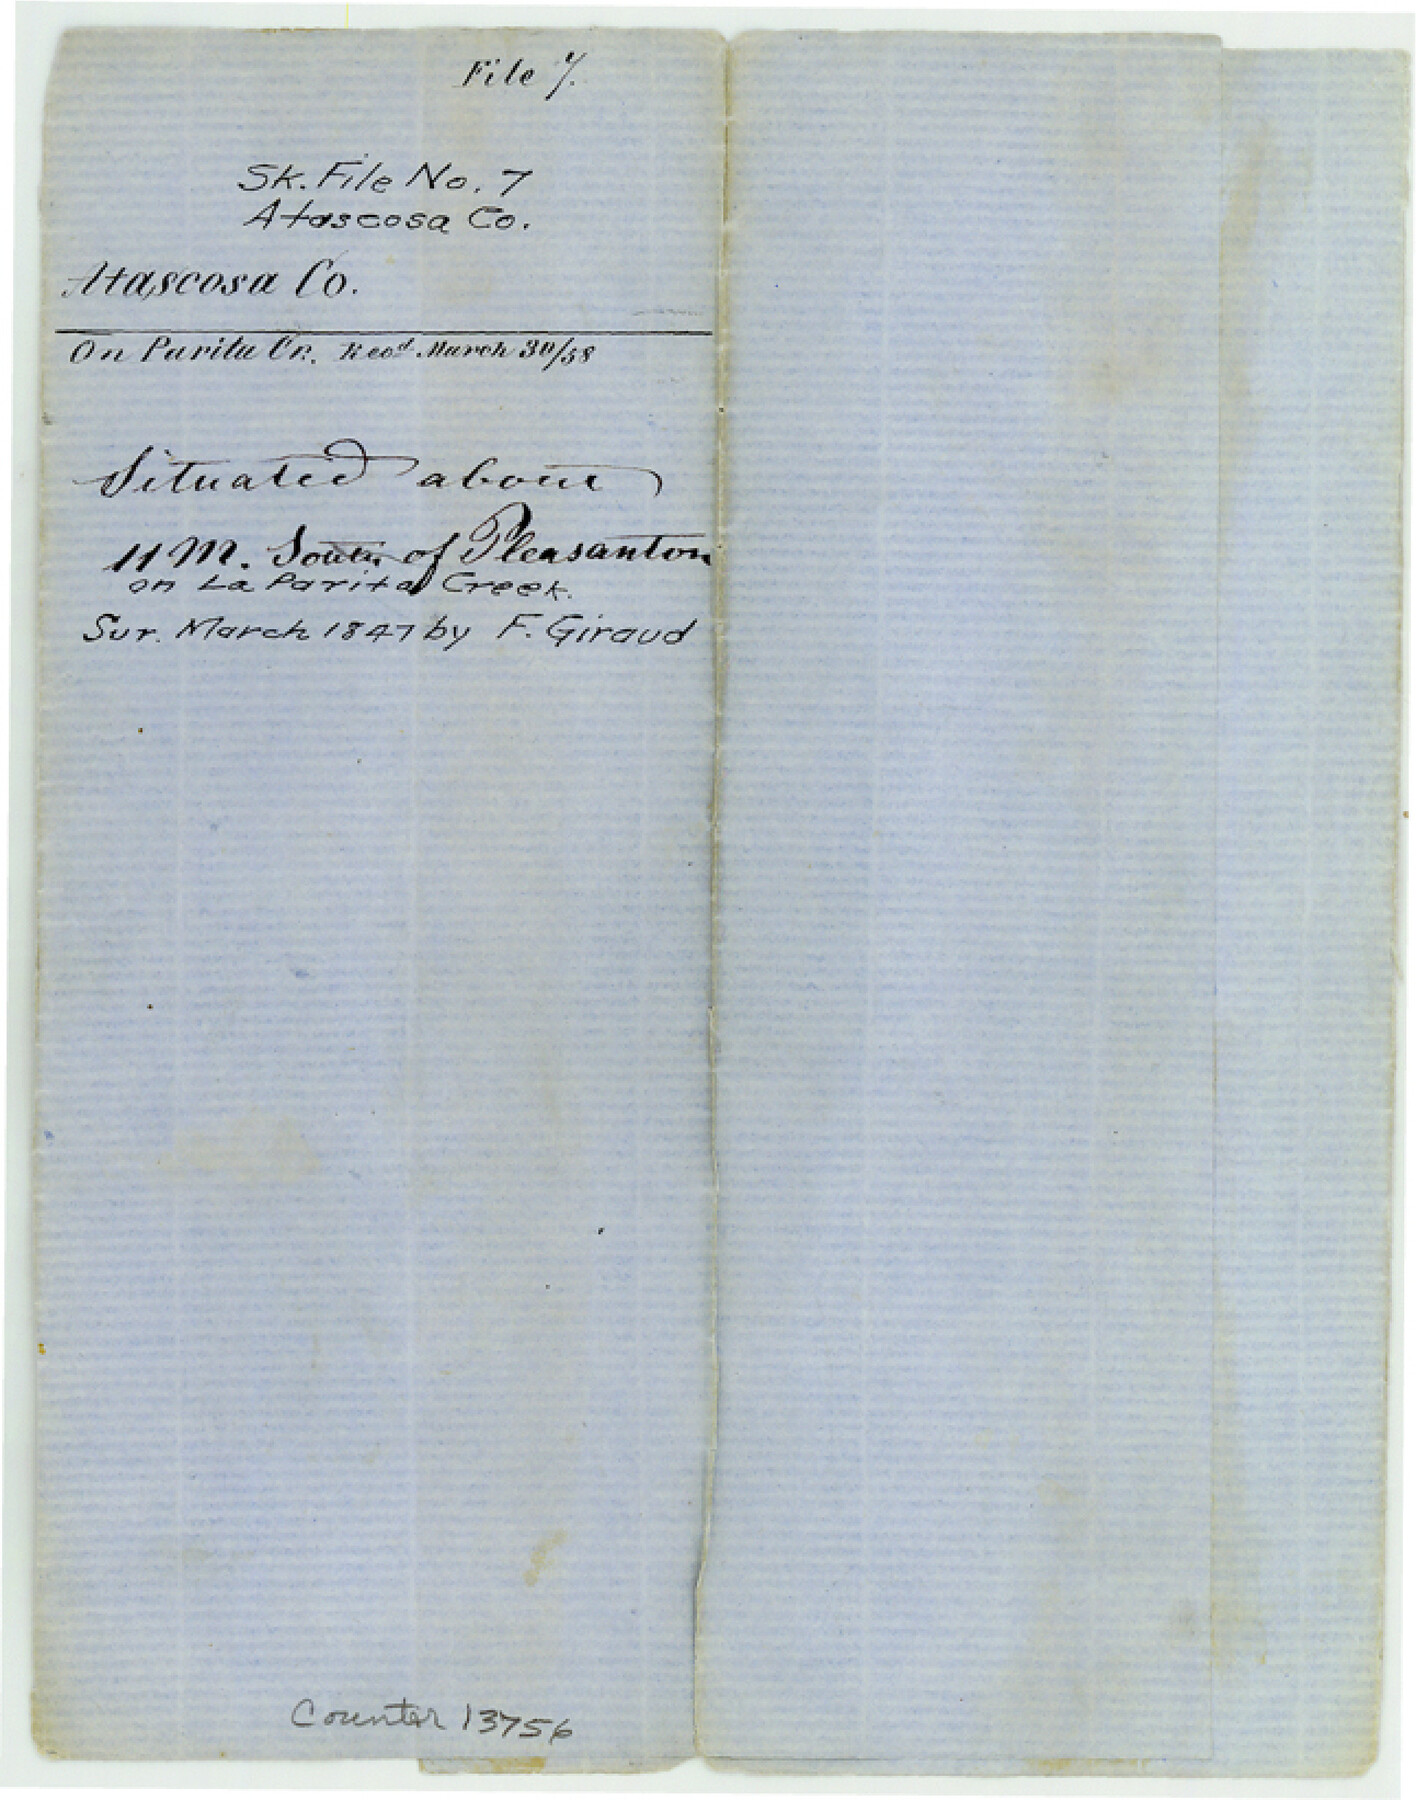 File 7.
Sk. File No. 7
Atascosa Co.
Atascosa Co.
On Parita Cr. Recd March 30/58
Situated about
11 M. South of Pleasanton
on La Parita Creek.
Sur. March 1847 by F. Giraud
Counter 13756